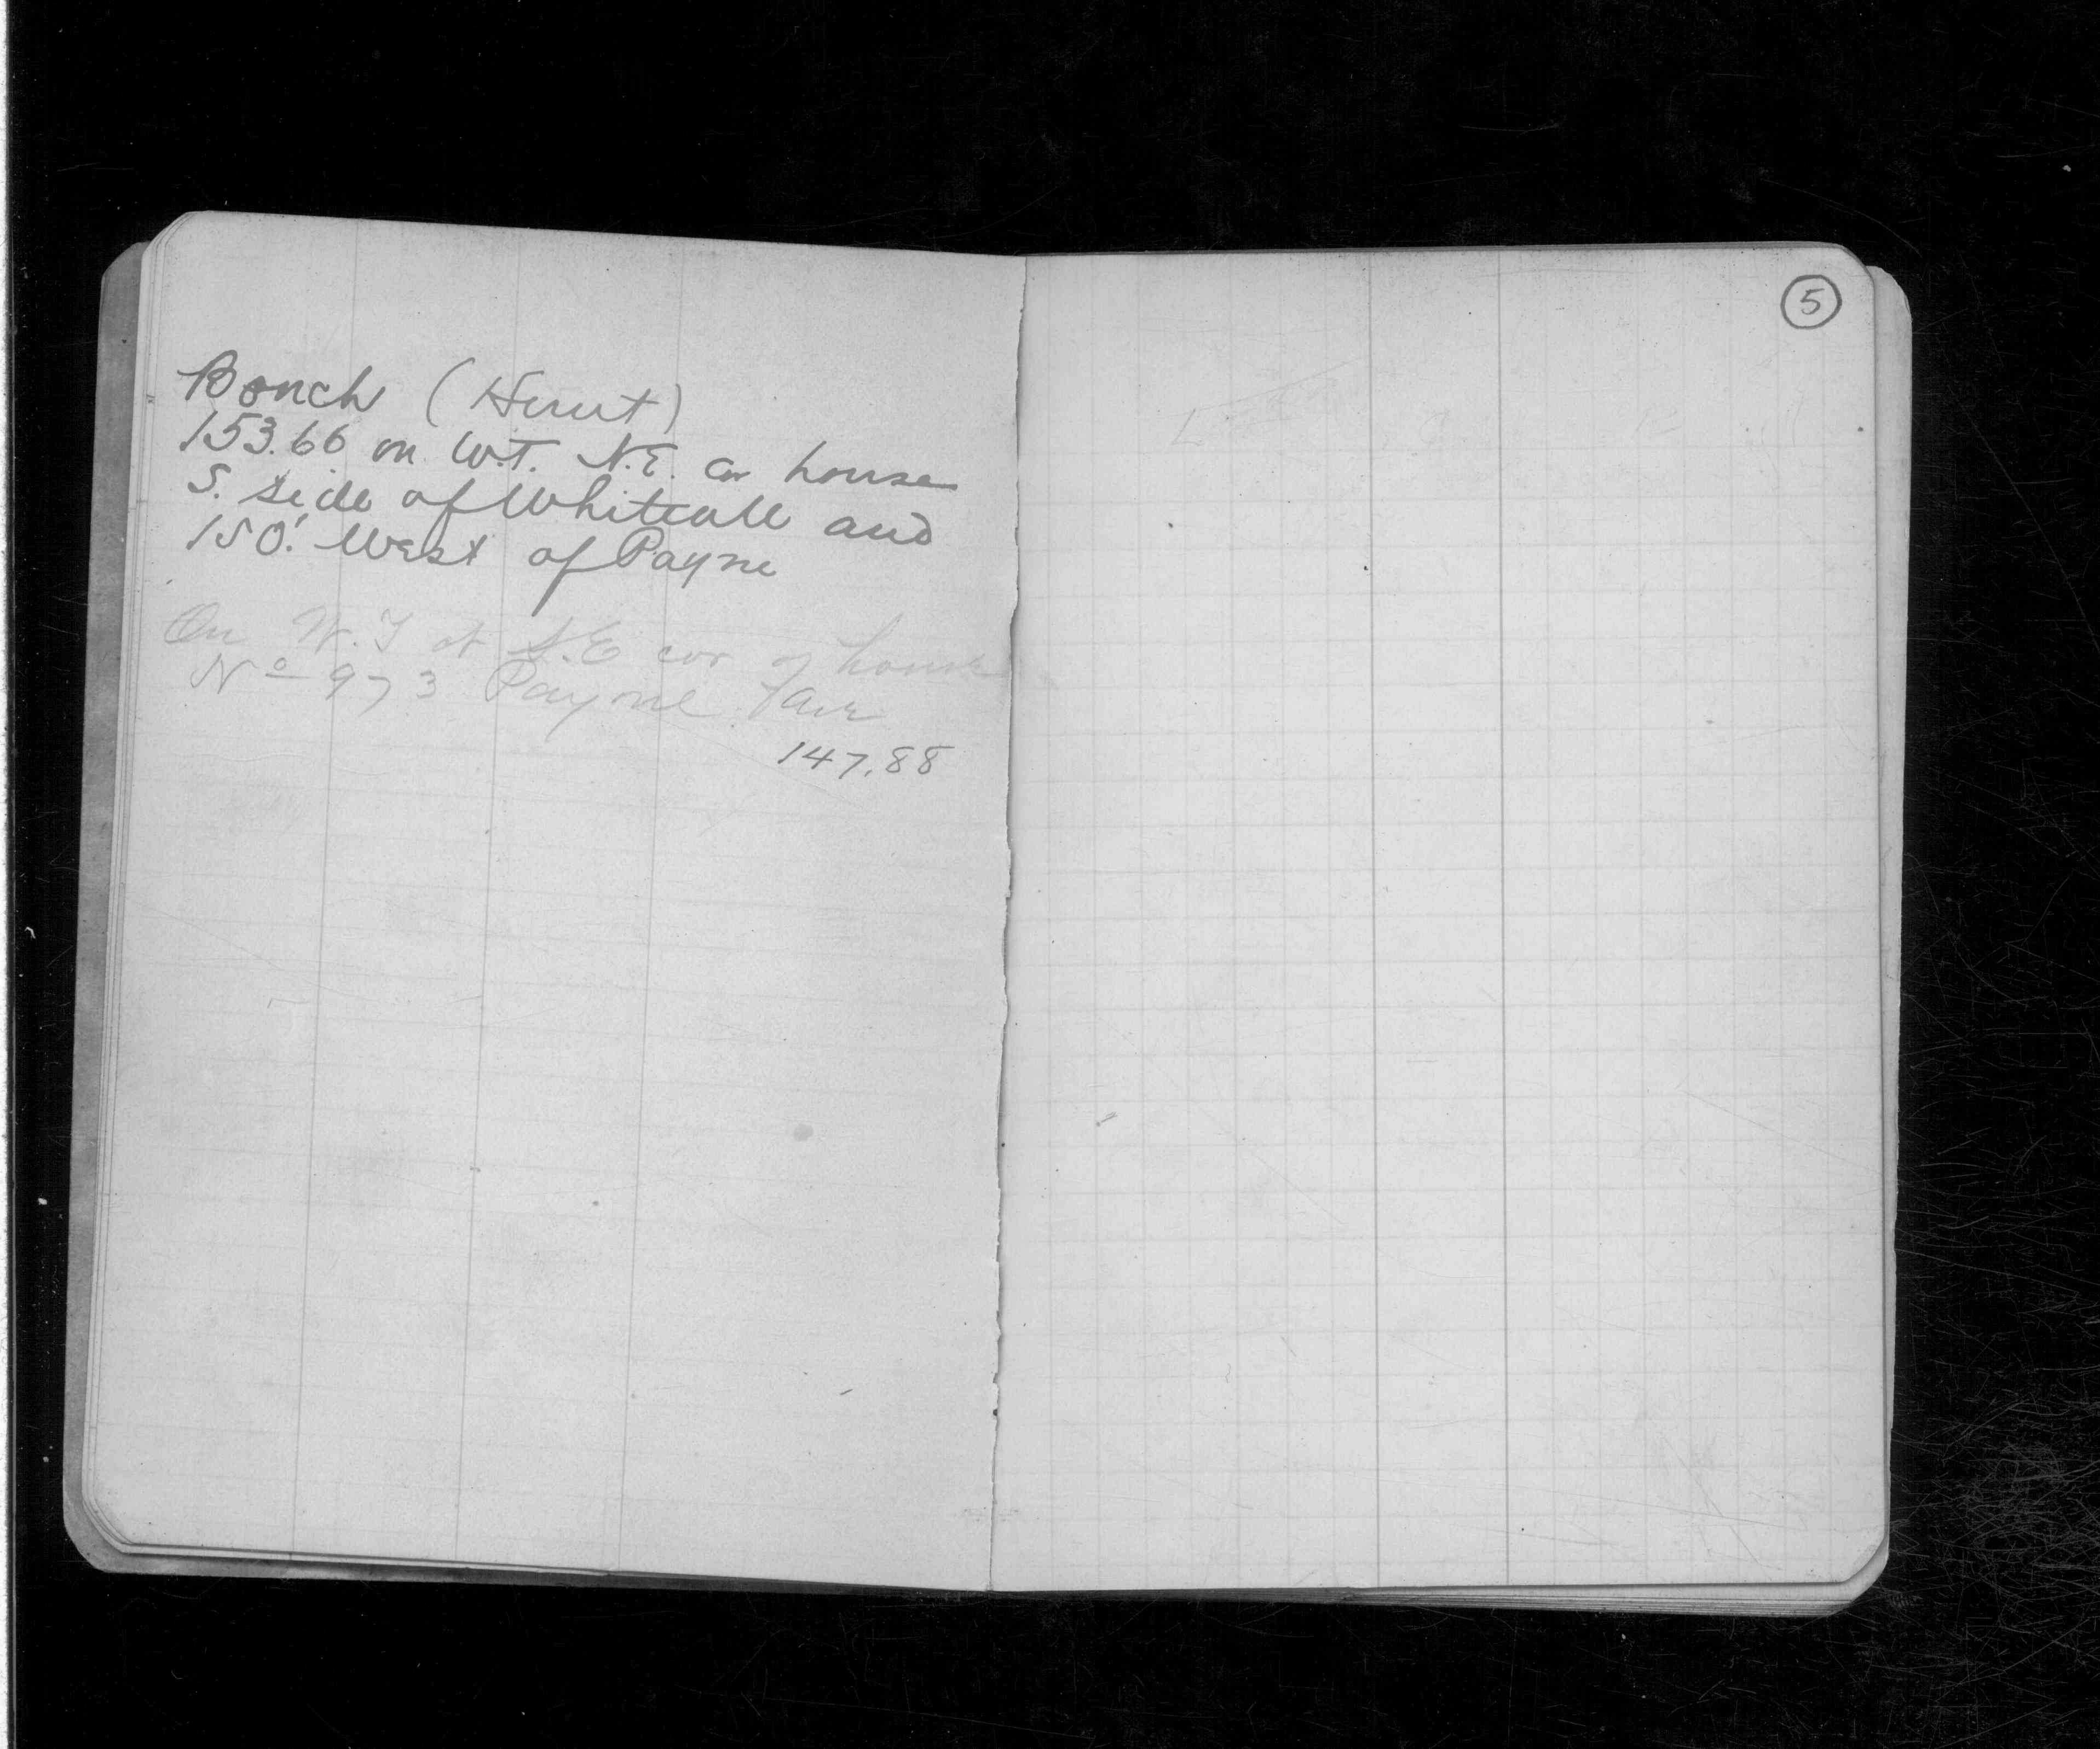 Bench (Hunt)
153.66 on W.T. N.E. cor house
S. side of Whiteall and
150.' West of Payne
On W.T at S.E cor of house
No 973 Payne Ave
147.88
5